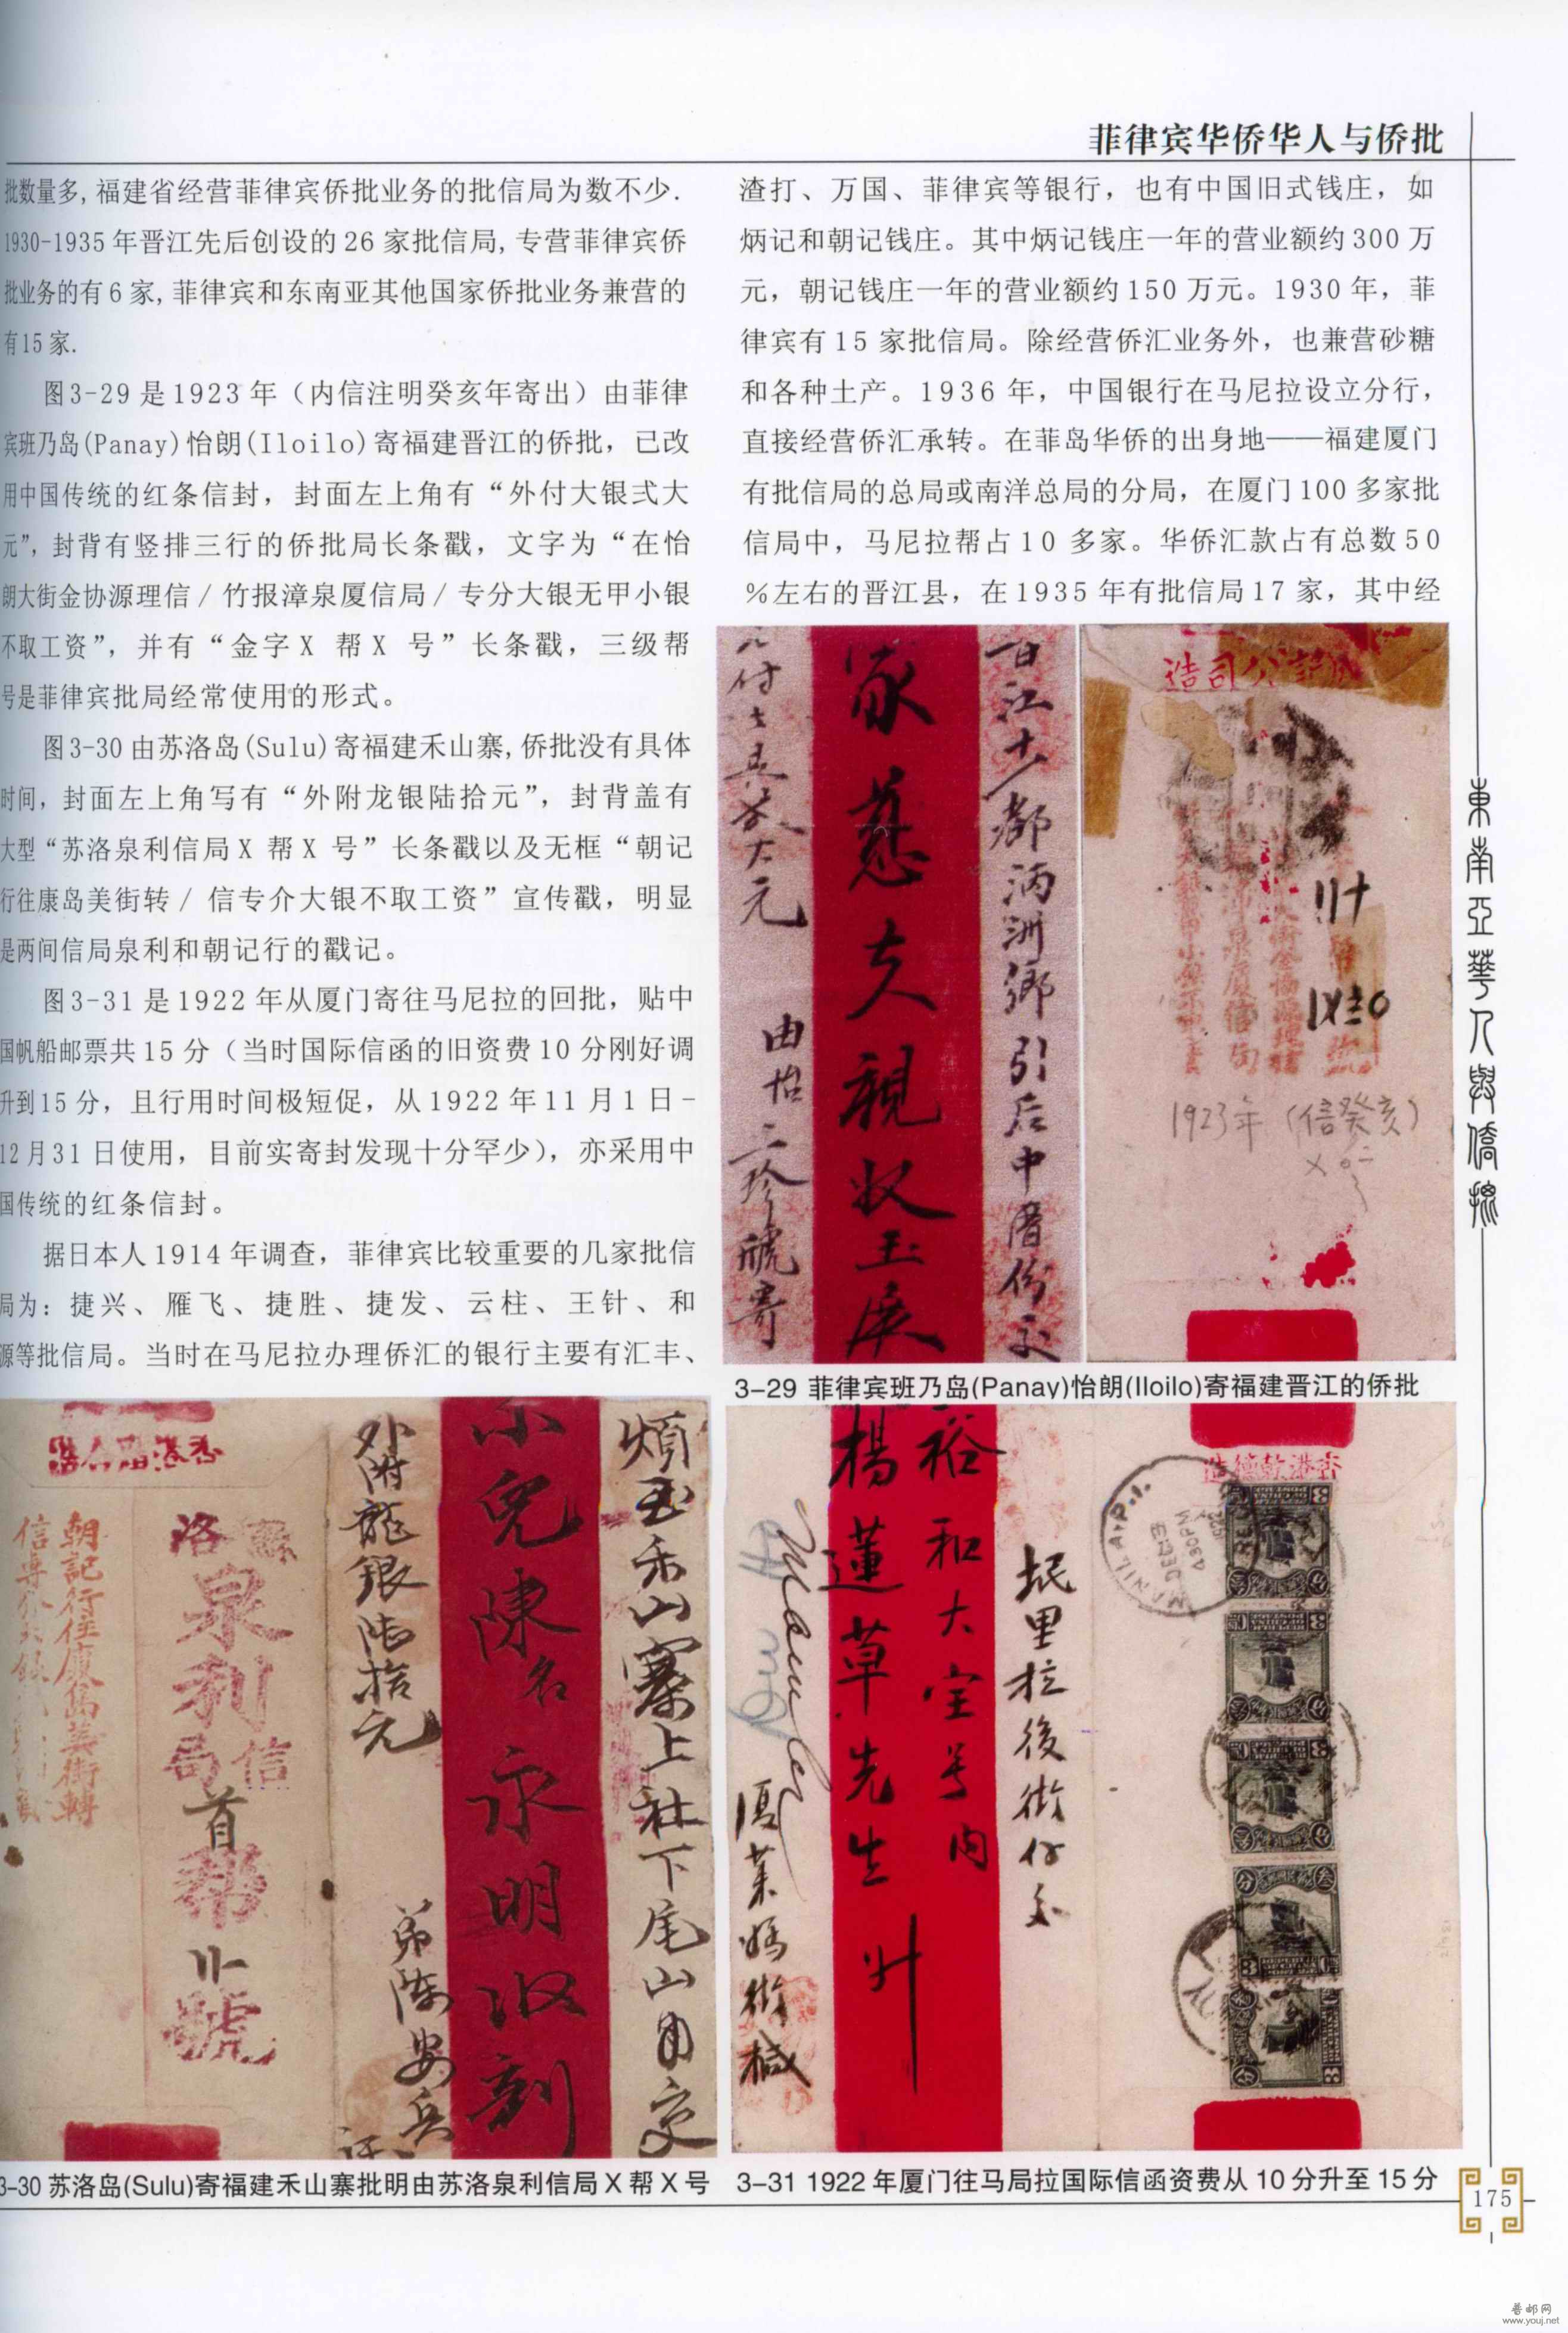 菲律宾华侨华人与侨批
批数量多,福建省经营菲律宾侨批业务的批信局为数不少.
1930-1935年晋江先后创设的26家批信局,专营菲律宾侨
批业务的有6家,菲律宾和东南亚其他国家侨批业务兼营的
有15家.
图3-29是1923年（内信注明癸亥年寄出）由菲律
宾班乃岛(Panay)怡朗(Iloilo)寄福建晋江的侨批，已改
用中国传统的红条信封，封面左上角有“外付大银弍大
元”，封背有竖排三行的侨批局长条戳，文字为“在怡
朗大街金协源理信/竹报漳泉厦信局/专分大银无甲小银
不取工资”，并有“金字X 帮X 号”长条戳，三级帮
号是菲律宾批局经常使用的形式。
图3-30由苏洛岛(Sulu)寄福建禾山寨,侨批没有具体
时间，封面左上角写有“外附龙银陆拾元”，封背盖有
大型“苏洛泉利信局X 帮X 号”长条戳以及无框“朝记
行往康岛美街转/ 信专介大银不取工资”宣传戳，明显
是两间信局泉利和朝记行的戳记。
图3-31是1922年从厦门寄往马尼拉的回批，贴中
国帆船邮票共15分（当时国际信函的旧资费10分刚好调
升到15分，且行用时间极短促，从1922年11月1日-
12月31日使用，目前实寄封发现十分罕少），亦采用中
国传统的红条信封。
据日本人1914年调查，菲律宾比较重要的几家批信
局为：捷兴、雁飞、捷胜、捷发、云柱、王针、和
源等批信局。当时在马尼拉办理侨汇的银行主要有汇丰、
渣打、万国、菲律宾等银行，也有中国旧式钱庄，如
炳记和朝记钱庄。其中炳记钱庄一年的营业额约300万
元，朝记钱庄一年的营业额约150万元。1930年，菲
律宾有15家批信局。除经营侨汇业务外，也兼营砂糖
和各种土产。1936年，中国银行在马尼拉设立分行，
直接经营侨汇承转。在菲岛华侨的出身地——福建厦门
有批信局的总局或南洋总局的分局，在厦门100多家批
信局中，马尼拉帮占10多家。华侨汇款占有总数50
%左右的晋江县，在1935年有批信局17家，其中经
家慈大人親收玉展
由怡
號寄
公司造
1923年（信癸亥）
3-29 菲律宾班乃岛(Panay)怡朗(Iloilo)寄福建晋江的侨批
煩至禾山寨上社下尾山角交
小兒陳名永明收刻
外附龍銀陸拾元
洛
泉利
信局
首幫
號
朝記行住廈島美街轉
3-30苏洛岛(Sulu)寄福建禾山寨批明由苏洛泉利信局X帮X号
岷里拉後街仔交
裕和大宝号内
楊蓮草先生升
MANILA P.I.
430PM
香港乾德造
3-31 1922年厦门往马局拉国际信函资费从10分升至15分
東南亞華人與僑批
175
普邮网
www.youj.net